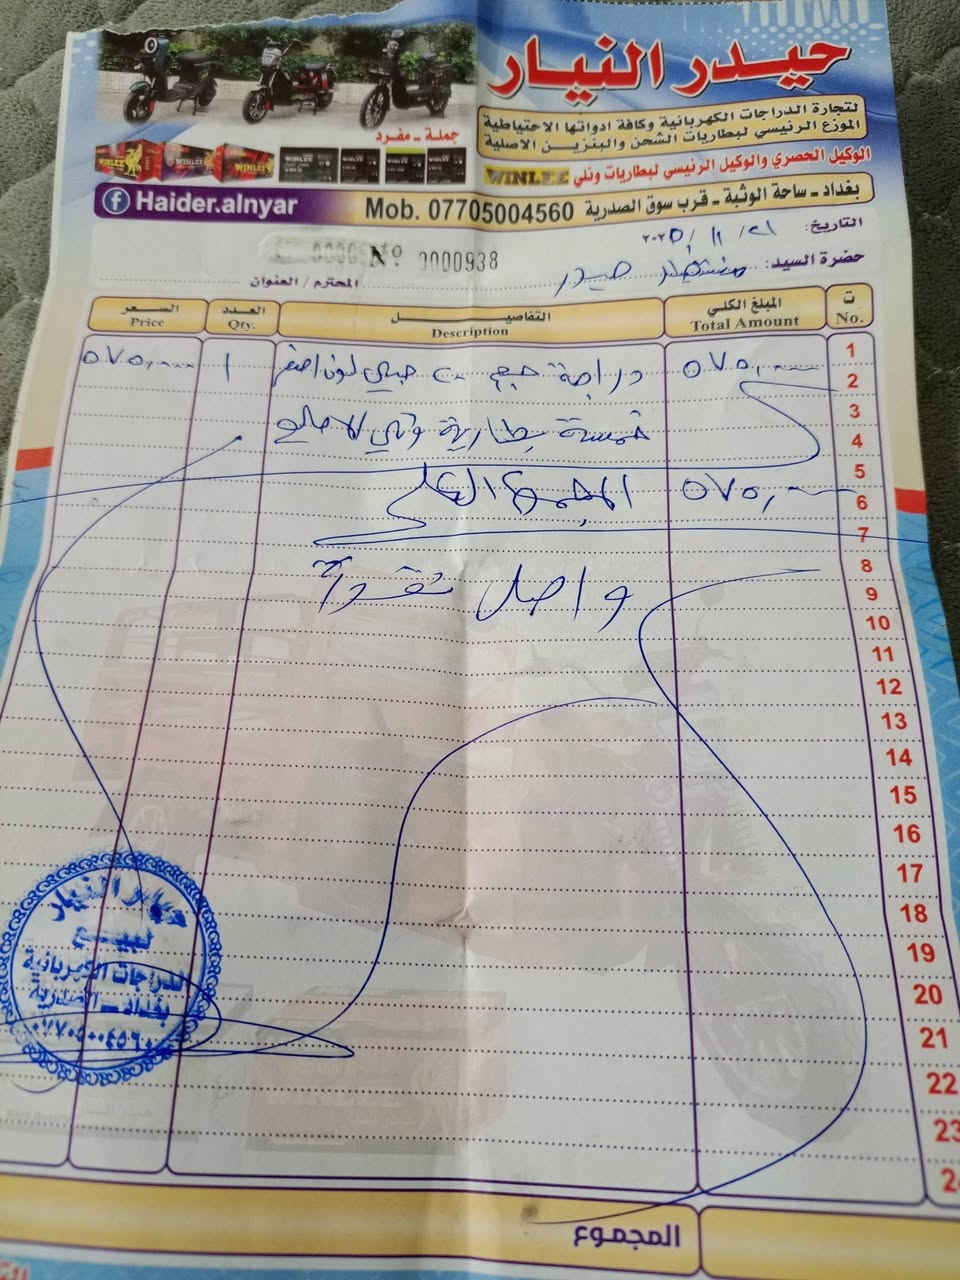 حيدر النيار
لتجارة الدراجات الكهربائية وكافة ادواتها الاحتياطية
الموزع الرئيسي لبطاريات الشحن والبنزين الاصلية
جملة - مفرد
الوكيل الحصري والوكيل الرئيسي لبطاريات ونلي WINLEE
بغداد - ساحة الوثبة - قرب سوق الصدرية Mob. 07705004560
Haider.alnyar
التاريخ: ٢١ / ١١ / ٢٠٢٥
Nº 0000938
حضرة السيد: حيدر
المحترم / العنوان
ت No. المبلغ الكلي Total Amount التفاصيل Description العدد Qty. السعر Price
1 ٥٧٥,٠٠٠ دراجة حجم لون اصفر ١ ٥٧٥,٠٠٠
2
3 خمسة بطارية ونلي الاصلي
4
5 ٥٧٥,٠٠٠ المجموع الكلي
6
7
8 واصل نقداً
9
10
11
12
13
14
15
16
17
18
19
20
21
22
23
24
حيدر النيار
لبيع
الدراجات الكهربائية
بغداد - الصدرية
٠٧٧٠٥٠٠٤٥٦٠
المجموع